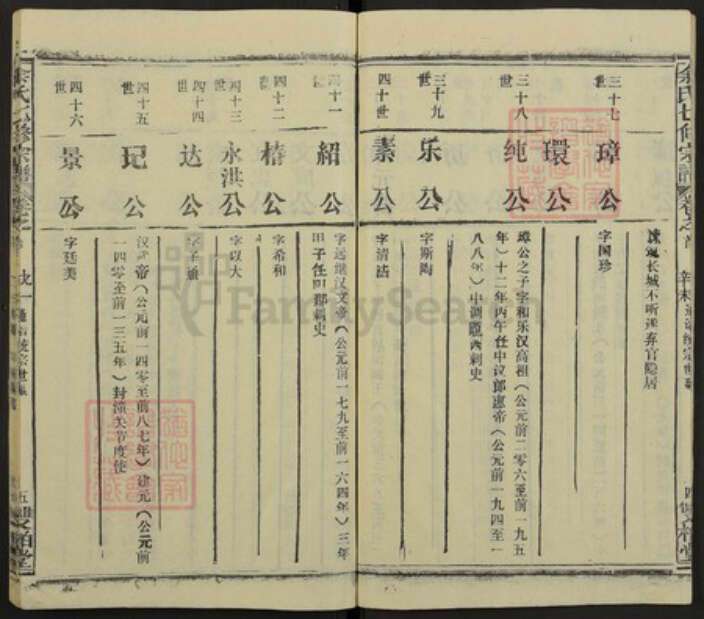 余氏七修宗谱
谏筑长城不听遂弃官隐居
三十七
世
璋公
字国珍
環公
三十八
世
纯公
璋公之子字和乐汉高祖（公元前二零六至前一九五
年）十二年丙午任中议郎惠帝（公元前一九四至一
八八年）中调陇西刺史
三十九
世
乐公
字斯陶
四十世
素公
字清洁
四十一
世
紹公
字远继汉文帝（公元前一七九至前一六四年）三年
甲子任
郡刺史
四十二
椿公
字希和
四十三
世
永洪公
字以大
四十四
世
达公
四十五
世
玘公
汉武帝（公元前一四零至前八七年）建元（公元前
一四零至前一三五年）封潼关节度使
四十六
世
景公
字廷美
余氏七修宗谱
FamilySearch